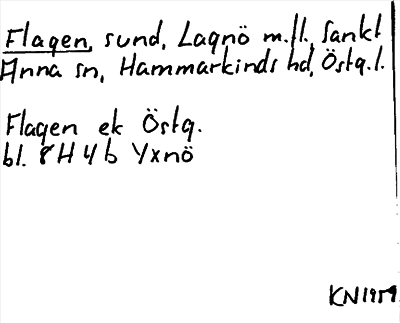 Flagen, sund, Lagnö m.fl., Sankt
Anna sn, Hammarkinds hd, Östg.l.
Flagen ek Östg.
bl. 8H 4b Yxnö
KN1959